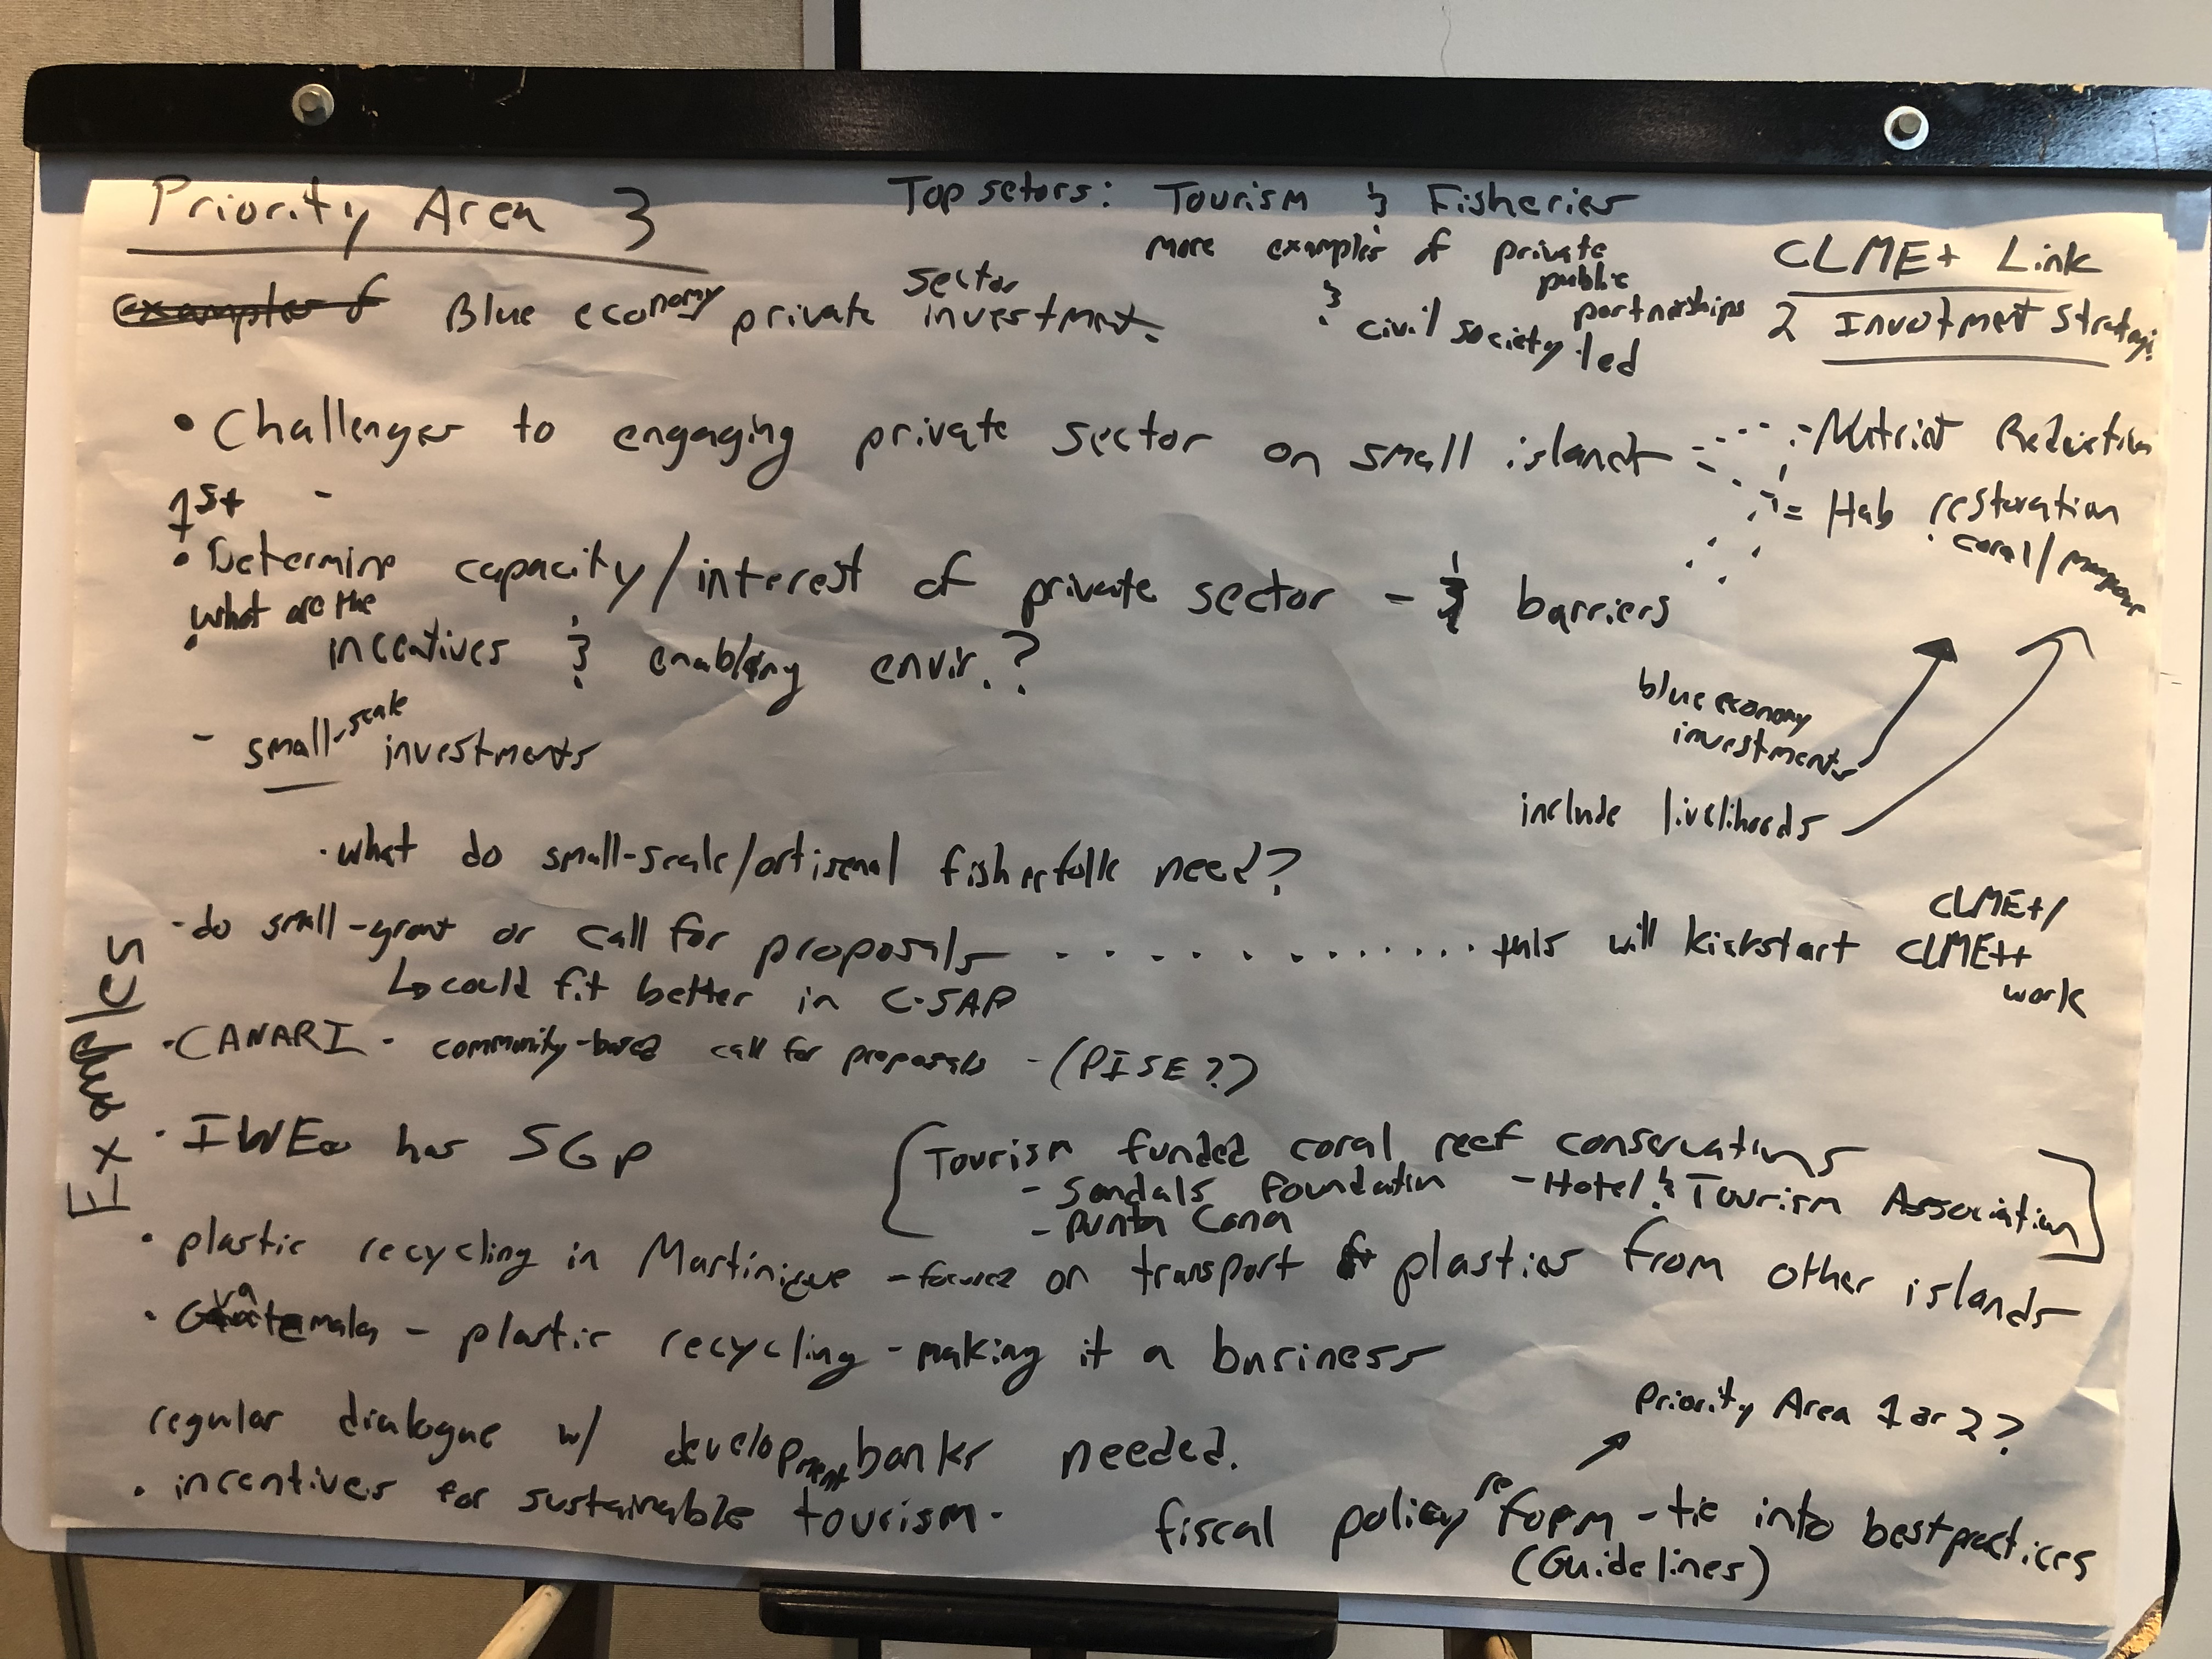 Priority Area 3
Top setors: Tourism & Fisheries
more examples of private
public
partnerships
& civil society led
CLME+ Link
2 Investment Strategi
examples of Blue economy private sector investment.
• Challenges to engaging private sector on small islands
- Nutrient Reduction
= Hab restoration
coral/
1st -
• Determine capacity/interest of private sector - & barriers
• what are the incentives & enabling envir.?
- small-scale investments
blue economy
investments
include livelihoods
• what do small-scale/artisenal fisherfolk need?
- do small-grant or call for proposals . . . . . . . . . . . this will kickstart CLME+/
CLME++
work
↳ could fit better in C-SAP
Examples
• CANARI - community-based call for proposals - (PISE??)
• IWEco has SGP
[Tourism funded coral reef conservations
- Sandals Foundation - Hotel & Tourism Association]
- Punta Cana
• plastic recycling in Martinique - focused on transport of plastics from other islands
• Guatemala - plastic recycling - making it a business
regular dialogue w/ development banks needed.
• incentives for sustainable tourism.
Priority Area 1 or 2?
fiscal policy reform - tie into best practices
(Guidelines)